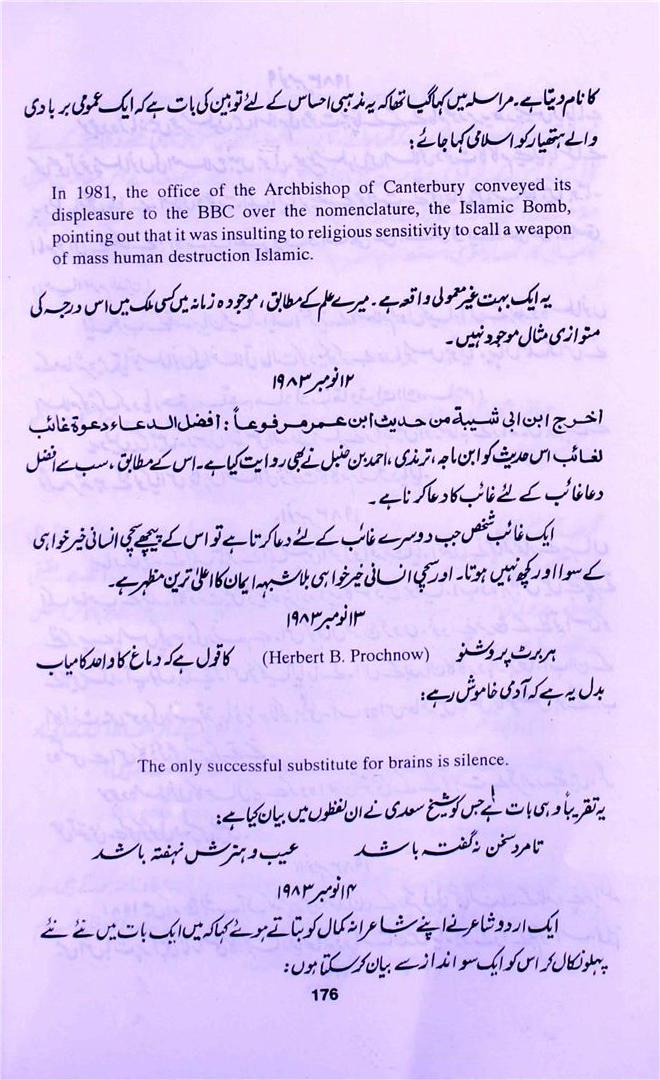 کا نام دیتا ہے۔ مراسلہ میں کہا گیا تھا کہ یہ مذہبی احساس کے لئے توہین کی بات ہے کہ ایک عمومی بربادی
والے ہتھیار کو اسلامی کہا جائے:
In 1981, the office of the Archbishop of Canterbury conveyed its
displeasure to the BBC over the nomenclature, the Islamic Bomb,
pointing out that it was insulting to religious sensitivity to call a weapon
of mass human destruction Islamic.
یہ ایک بہت غیر معمولی واقعہ ہے۔ میرے علم کے مطابق، موجودہ زمانہ میں کسی ملک میں اس درجہ کی
متوازی مثال موجود نہیں۔
۱۲ نومبر ۱۹۸۳
اخرج ابن ابی شیبة من حدیث ابن عمر مرفوعاً: أفضل الدعاء دعوة غائب
لغائب اس حدیث کو ابن ماجہ، ترمذی، احمد بن حنبل نے بھی روایت کیا ہے۔ اس کے مطابق، سب سے افضل
دعا غائب کے لئے غائب کا دعا کرنا ہے۔
ایک غائب شخص جب دوسرے غائب کے لئے دعا کرتا ہے تو اس کے پیچھے سچی انسانی خیر خواہی
کے سوا اور کچھ نہیں ہوتا۔ اور سچی انسانی خیر خواہی بلاشبہہ ایمان کا اعلیٰ ترین مظہر ہے۔
۱۳ نومبر ۱۹۸۳
ہربرٹ پروشنو (Herbert B. Prochnow) کا قول ہے کہ دماغ کا واحد کامیاب
بدل یہ ہے کہ آدمی خاموش رہے:
The only successful substitute for brains is silence.
یہ تقریباً وہی بات ہے جس کو شیخ سعدی نے ان لفظوں میں بیان کیا ہے:
تا مرد سخن نہ گفتہ باشد عیب و ہنرش نہفتہ باشد
۱۴ نومبر ۱۹۸۳
ایک اردو شاعر نے اپنے شاعرانہ کمال کو بتاتے ہوئے کہا کہ میں ایک بات میں نئے نئے
پہلو نکال کر اس کو ایک سو انداز سے بیان کر سکتا ہوں:
176